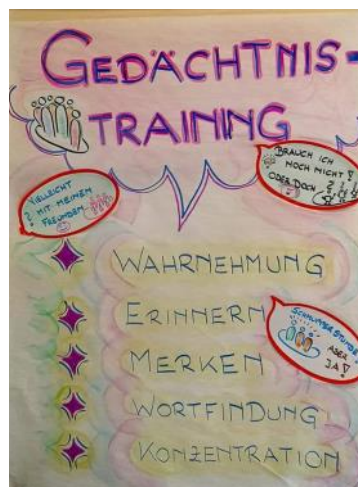 GEDÄCHTNIS-
TRAINING
BRAUCH ICH
NOCH NICHT!
ODER DOCH
VIELLEICHT
MIT MEINEN
FREUNDEN
?!
WAHRNEHMUNG
ERINNERN
SCHNUPPERSTUNDE
ABER
JA!
MERKEN
WORTFINDUNG
KONZENTRATION